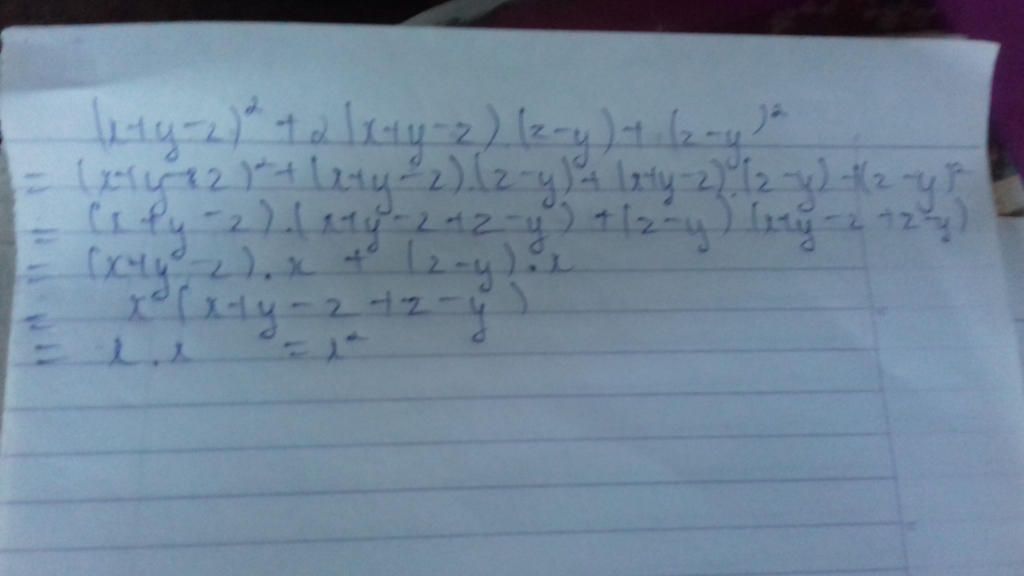 (x+y-z)² + 2(x+y-z).(z-y)+(z-y)²
= (x+y-z)²+(x+y-z).(z-y)+(x+y-z).(z-y)+(z-y)²
= (x+y-z).(x+y-z+z-y)+(z-y)(x+y-z+z-y)
= (x+y-z).x + (z-y).x
= x(x+y-z+z-y)
= x.x = x²